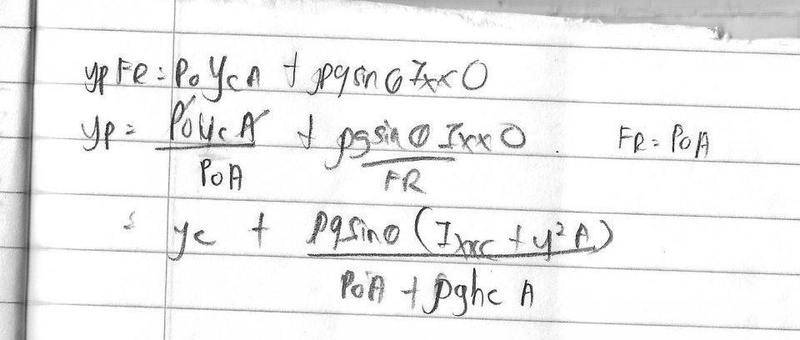 yp FR = P₀ yc A + ρg sin θ Ixx O
yp = P₀ yc A / P₀ A + ρg sin θ Ixx O / FR . FR = P₀ A
= yc + ρg sin θ (Ixxc + y² A) / P₀ A + ρg hc A